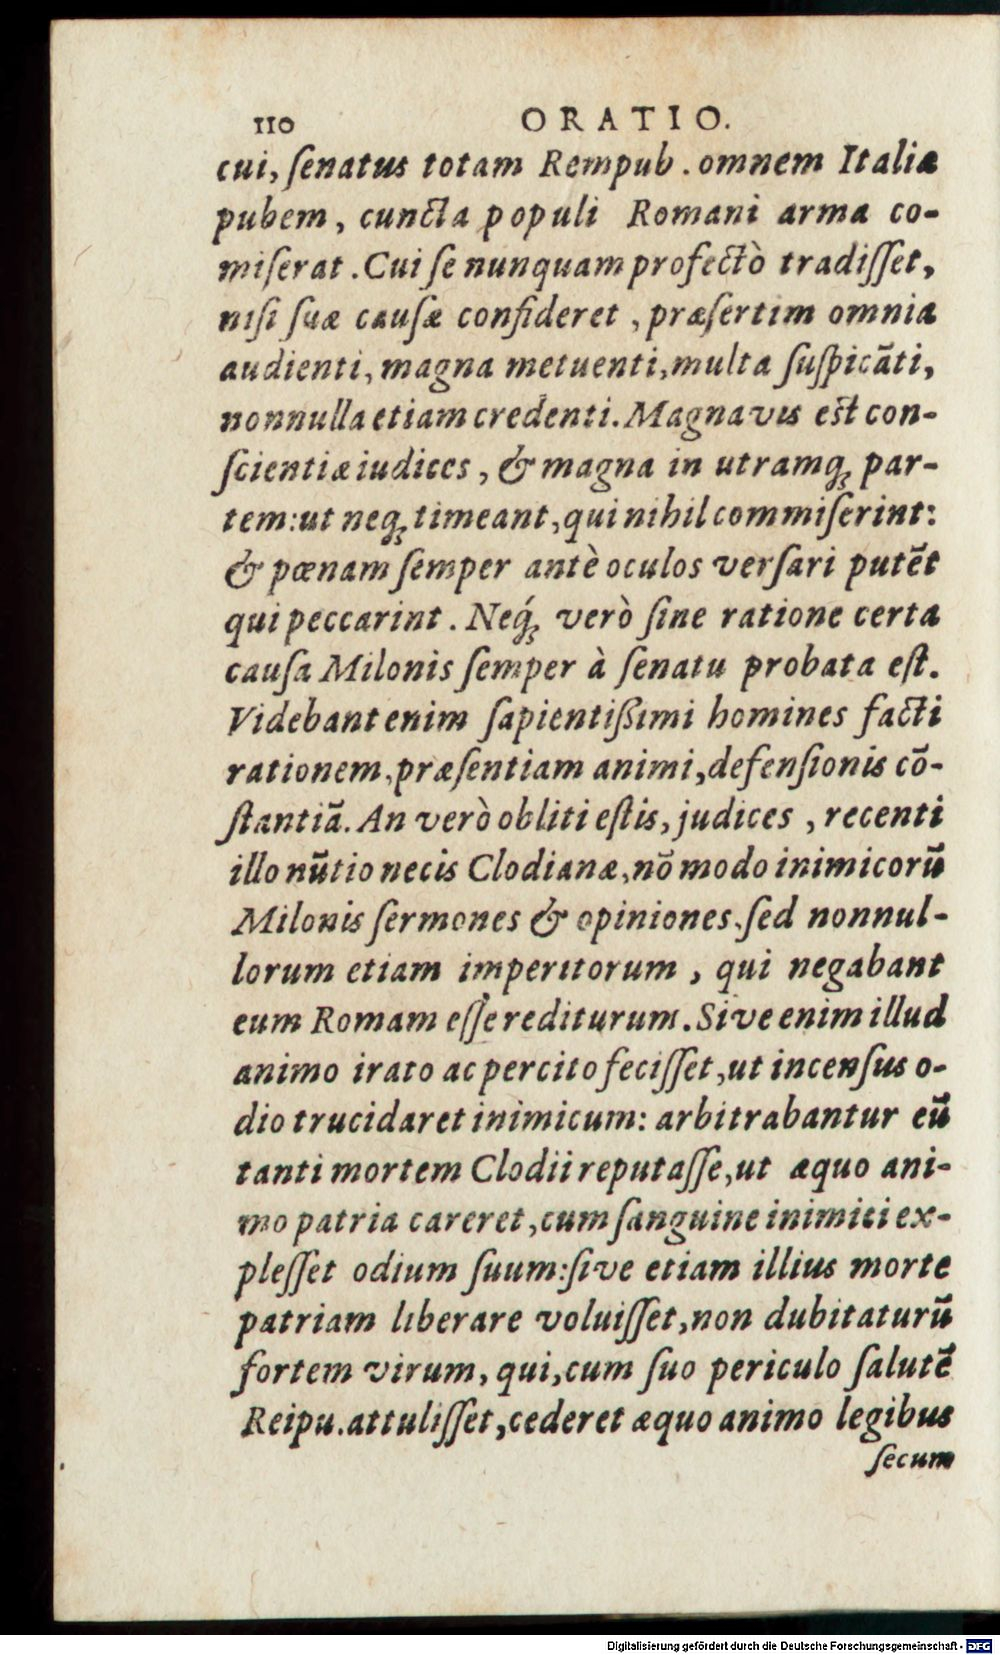 110 ORATIO.
cui, ſenatus totam Rempub. omnem Italiæ
pubem, cuncta populi Romani arma co-
miſerat. Cui ſe nunquam profectò tradiſſet,
niſi ſuæ cauſæ confideret, præſertim omnia
audienti, magna metuenti, multa ſuſpicāti,
nonnulla etiam credenti. Magna vis est con-
ſcientiæ iudices, & magna in utramq; par-
tem: ut neq; timeant, qui nihil commiſerint:
& pœnam ſemper antè oculos verſari putēt
qui peccarint. Neq́; verò ſine ratione certa
cauſa Milonis ſemper à ſenatu probata eſt.
Videbant enim ſapientißimi homines facti
rationem, præſentiam animi, defenſionis cō-
ſtantiā. An verò obliti eſtis, judices, recenti
illo nūtio necis Clodianæ, nō modo inimicorū
Milonis ſermones & opiniones, ſed nonnul-
lorum etiam imperitorum, qui negabant
eum Romam eſſe rediturum. Sive enim illud
animo irato ac percito feciſſet, ut incenſus o-
dio trucidaret inimicum: arbitrabantur eū
tanti mortem Clodii reputaſſe, ut æquo ani-
mo patria careret, cum ſanguine inimici ex-
pleſſet odium ſuum: ſive etiam illius morte
patriam liberare voluiſſet, non dubitaturū
fortem virum, qui, cum ſuo periculo ſalutē
Reipu. attuliſſet, cederet æquo animo legibus
ſecum
Digitalisierung gefördert durch die Deutsche Forschungsgemeinschaft - DFG